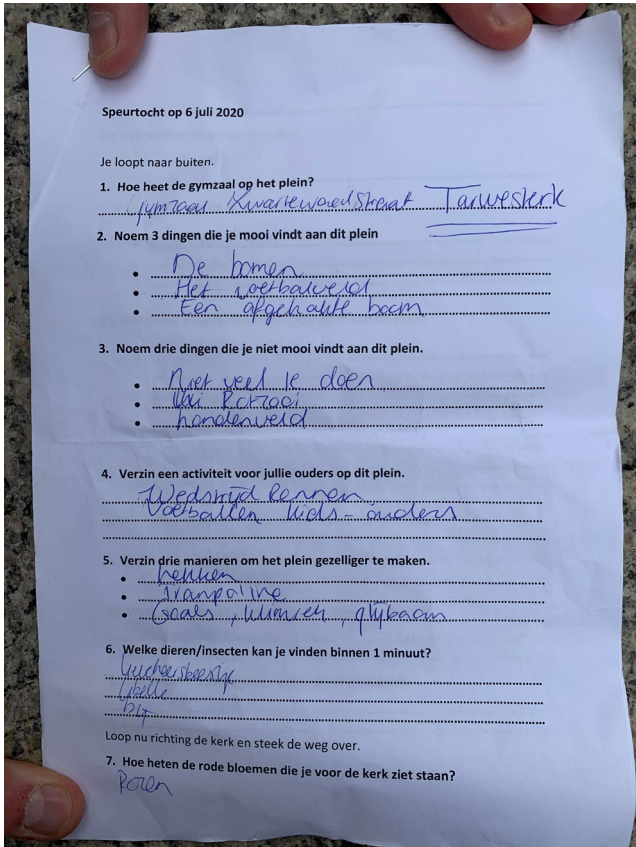 Speurtocht op 6 juli 2020
Je loopt naar buiten.
1. Hoe heet de gymzaal op het plein?
Gymzaal Zwartewaalstraat Tarwesterk
2. Noem 3 dingen die je mooi vindt aan dit plein
• De bomen
• Het voetbalveld
• Een afgehakte boom
3. Noem drie dingen die je niet mooi vindt aan dit plein.
• Niet veel te doen
• Rotzooi
• hondenveld
4. Verzin een activiteit voor jullie ouders op dit plein.
Wedstrijd Rennen
Voetballen kids - ouders
5. Verzin drie manieren om het plein gezelliger te maken.
• hekken
• Trampoline
• Goals, klimrek, glijbaan
6. Welke dieren/insecten kan je vinden binnen 1 minuut?
Lieveheersbeestje
Libelle
bij
Loop nu richting de kerk en steek de weg over.
7. Hoe heten de rode bloemen die je voor de kerk ziet staan?
Rozen